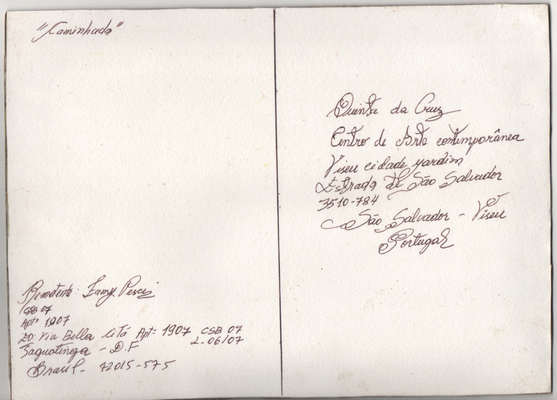 "Caminhada"
Remetente: Lamy Perci
CSB 07
Aptº 1907
ED. Via Bella Citá Apt= 1907 CSB 07
Taguatinga - DF L-06/07
Brasil - 72015-575
Quinta da Cruz
Centro de Arte contemporânea
Viseu cidade jardim
Estrada de São Salvador
3510-784
São Salvador - Viseu
Portugal